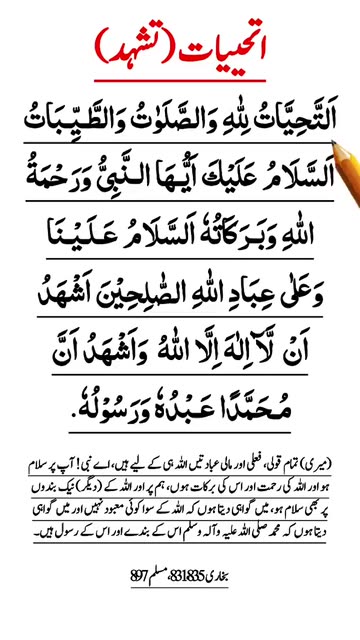 اتحییات (تشہد)
اَلتَّحِيَّاتُ لِلّٰهِ وَالصَّلَوٰتُ وَالطَّيِّبَاتُ
اَلسَّلَامُ عَلَيْكَ اَيُّهَا النَّبِيُّ وَرَحْمَةُ
اللّٰهِ وَبَرَكَاتُهٗ اَلسَّلَامُ عَلَيْنَا
وَعَلٰى عِبَادِ اللّٰهِ الصّٰلِحِيْنَ اَشْهَدُ
اَنْ لَّآ اِلٰهَ اِلَّا اللّٰهُ وَاَشْهَدُ اَنَّ
مُحَمَّدًا عَبْدُهٗ وَرَسُوْلُهٗ.
(میری) تمام قولی، فعلی اور مالی عبادتیں اللہ ہی کے لیے ہیں، اے نبی! آپ پر سلام
ہو اور اللہ کی رحمت اور اس کی برکات ہوں، ہم پر اور اللہ کے (دیگر) نیک بندوں
پر بھی سلام ہو، میں گواہی دیتا ہوں کہ اللہ کے سوا کوئی معبود نہیں اور میں گواہی
دیتا ہوں کہ محمد صلی اللہ علیہ وآلہ وسلم اس کے بندے اور اس کے رسول ہیں۔
بخاری 831،835، مسلم 897